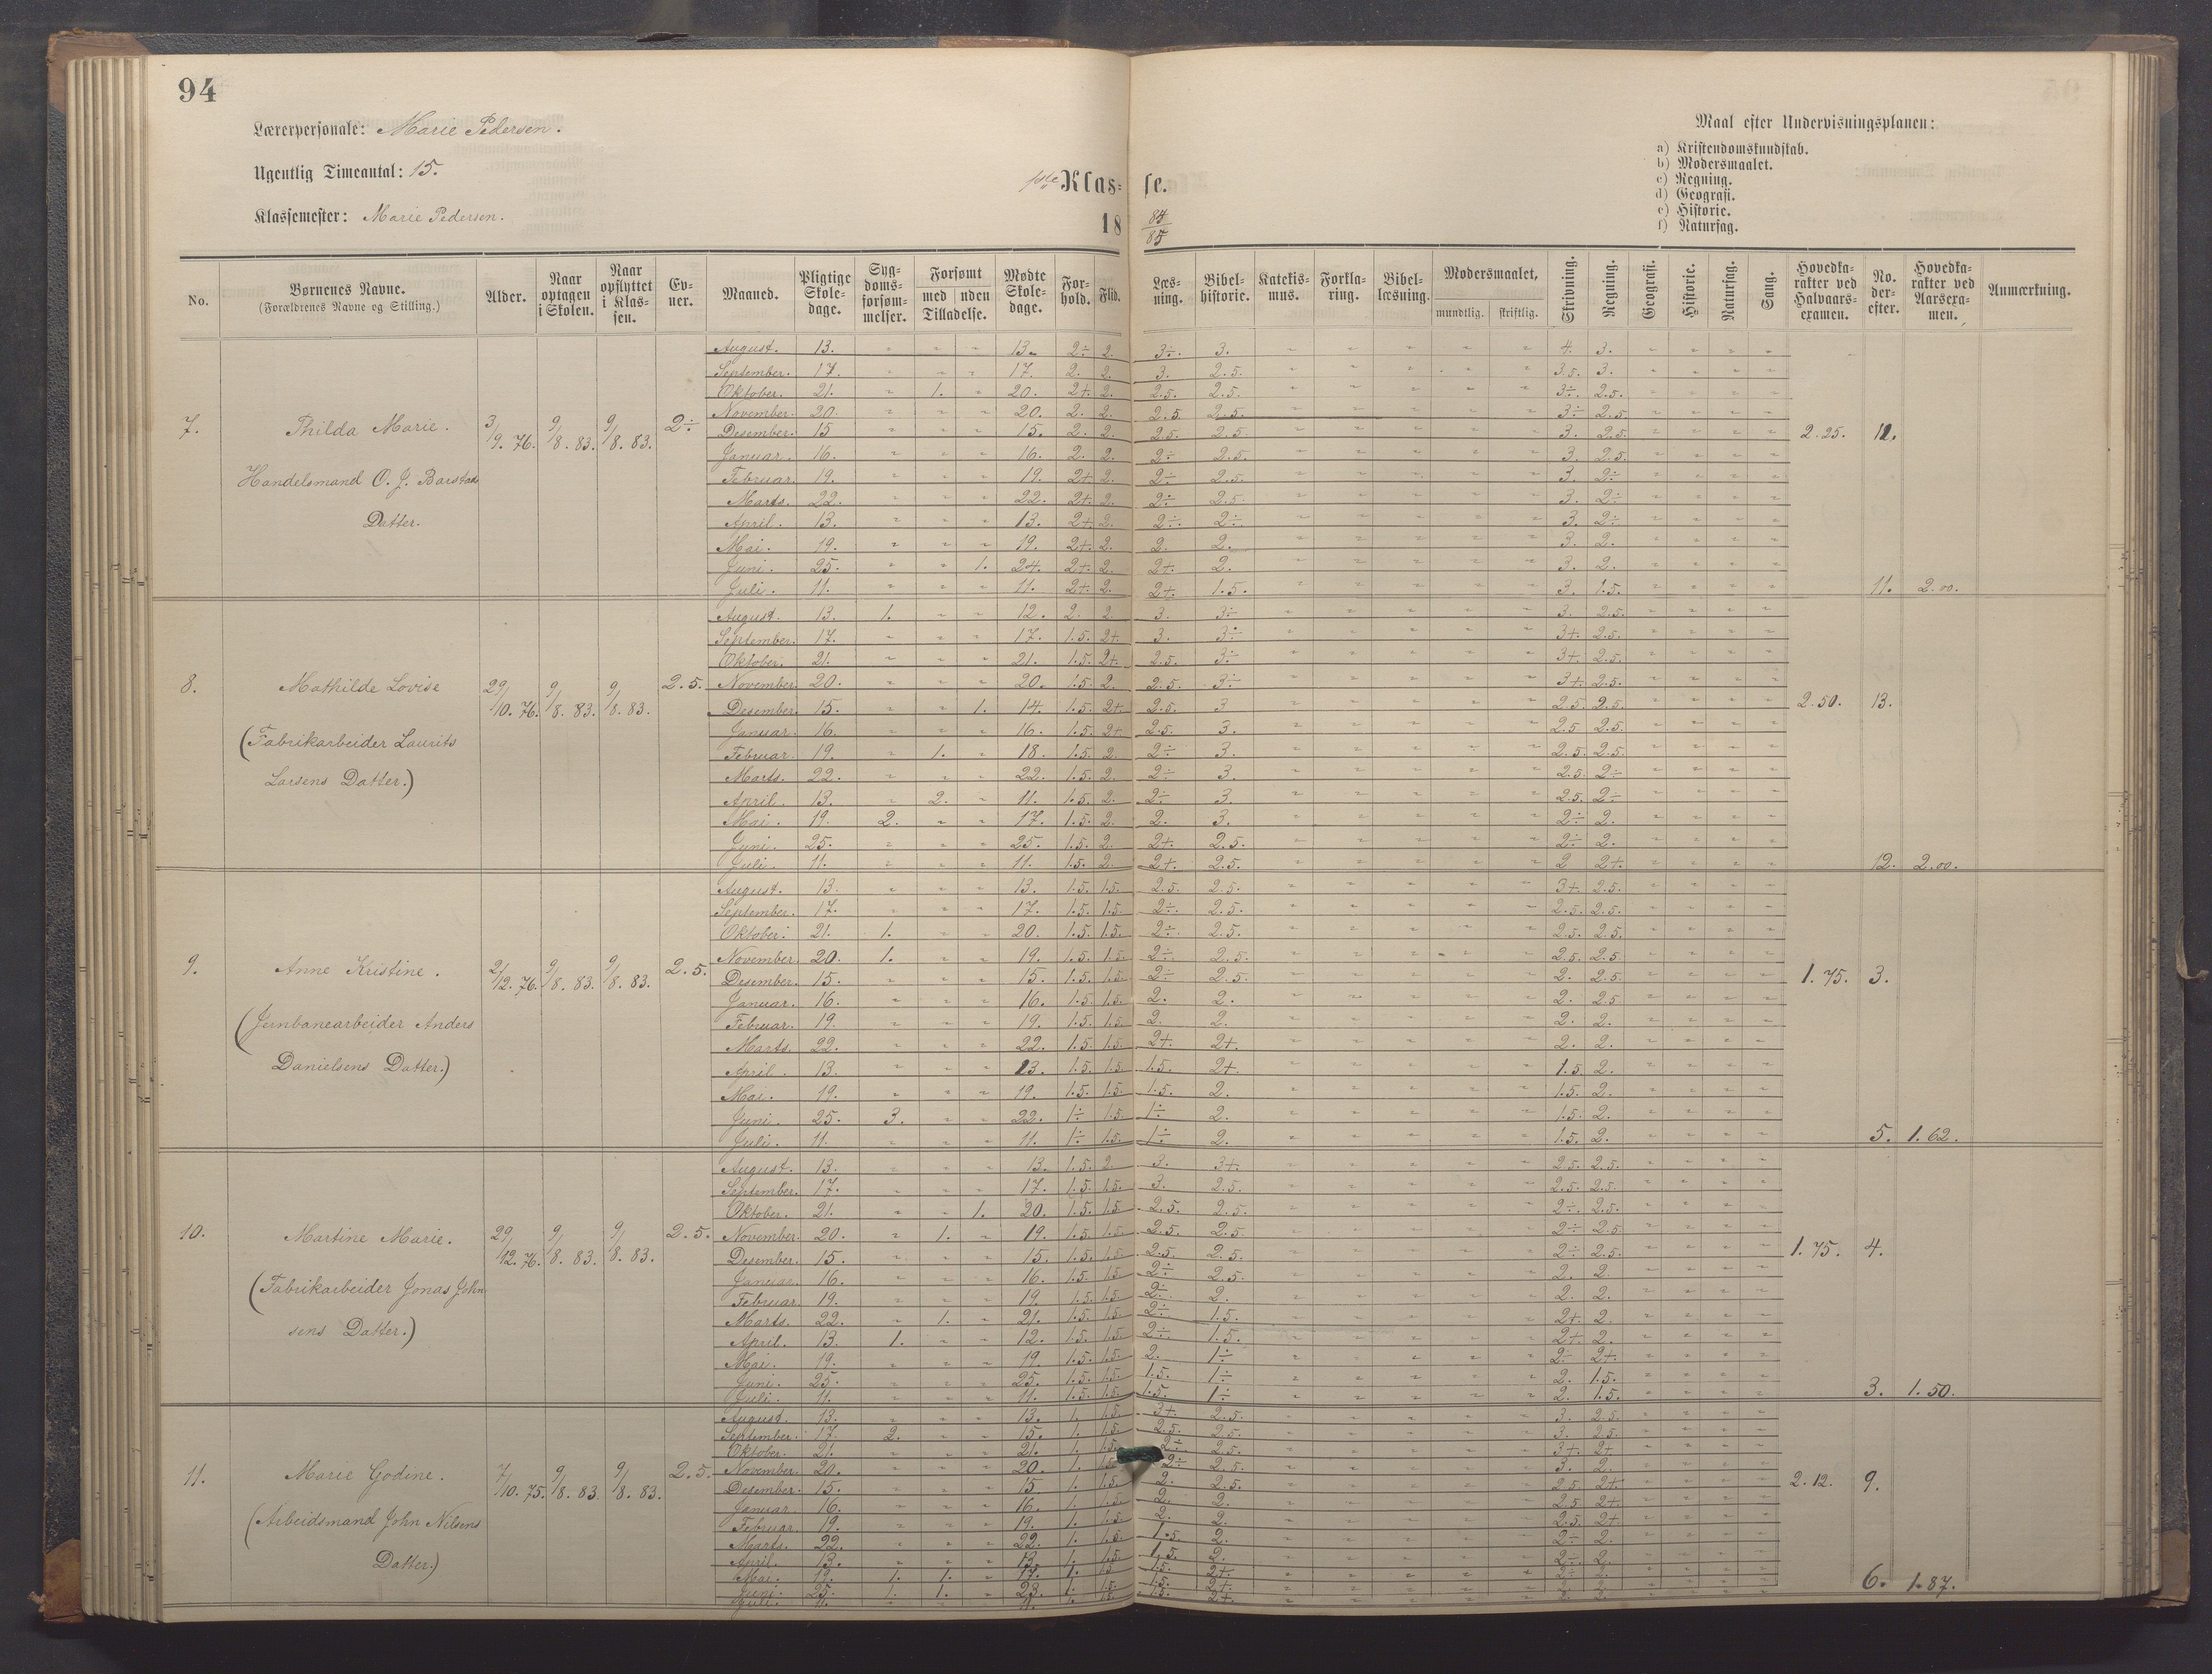 94
Lærerpersonale: Marie Pedersen.
Ugentlig Timeantal: 15.
Klassemester: Marie Pedersen.
1ste Klasse.
18 84/85
Maal efter Undervisningsplanen:
a) Kristendomskundskab.
b) Modersmaalet.
c) Regning.
d) Geografi.
e) Historie.
f) Naturfag.
No. Børnenes Navne. (Forældrenes Navne og Stilling.) Alder. Naar optagen i Skolen. Naar opflyttet i Klassen. Evner. Maaned. Pligtige Skoledage. Sygdomsforsømmelser. Forsømt med uden Tilladelse. Mødte Skoledage. Forhold. Flid. Læsning. Bibelhistorie. Katekismus. Forklaring. Bibellæsning. Modersmaalet, mundtlig. skriftlig. Skrivning. Regning. Geografi. Historie. Naturfag. Sang. Hovedkarakter ved Halvaarsexamen. No. derefter. Hovedkarakter ved Aarsexamen. Anmærkning.
August. 13. " " " 13. 2÷ 2. 3÷. 3. " " " " " 4. 3. " " " "
September. 17. " " " 17. 2. 2. 3. 2.5. " " " " " 3.5. 3. " " " "
Oktober. 21. " 1. " 20. 2+ 2. 2.5. 2.5. " " " " " 3÷ 2.5. " " " "
November. 20. " " " 20. 2. 2. 2.5. 2.5. " " " " " 3÷ 2.5. " " " "
7. Thilda Marie. 3/9. 76. 9/8. 83. 9/8. 83. 2÷ Desember. 15 " " " 15. 2. 2. 2.5. 2.5. " " " " " 3. 2.5. " " " " 2.25. 12.
Januar. 16. " " " 16. 2. 2. 2÷ 2.5. " " " " " 3. 2.5. " " " "
Handelsmand O. J. Barstads Februar. 19. " " " 19. 2+ 2. 2÷ 2.5. " " " " " 3. 2÷ " " " "
Marts. 22. " " " 22. 2+. 2. 2÷ 2.5. " " " " " 3. 2÷ " " " "
Datter. April. 13. " " " 13. 2+ 2. 2÷. 2÷ " " " " " 3. 2÷ " " " "
Mai. 19. " " " 19. 2+. 2. 2. 2. " " " " " 3. 2. " " " "
Juni. 25. " " 1. 24. 2+. 2. 2+. 2. " " " " " 3. 2. " " " "
Juli. 11. " " " 11. 2+. 2. 2+. 1.5. " " " " " 3. 1.5. " " " " 11. 2.00.
August. 13. 1. " " 12. 2. 2. 3. 3÷ " " " " " 3. 2.5. " " " "
September. 17. " " " 17. 1.5. 2+ 3. 3÷ " " " " " 3+. 2.5. " " " "
Oktober. 21. " " " 21. 1.5. 2+. 2.5. 3÷ " " " " " 3+. 2.5. " " " "
8. Mathilde Lovise 29/10. 76. 9/8. 83. 9/8. 83. 2.5. November. 20. " " " 20. 1.5. 2. 2.5. 3÷ " " " " " 3+. 2.5. " " " "
Desember. 15. " " 1. 14. 1.5. 2+ 2.5. 3 " " " " " 2.5. 2.5. " " " " 2.50. 13.
Januar. 16. " " " 16. 1.5. 2+ 2.5. 3. " " " " " 2.5 2.5. " " " "
(Fabrikarbeider Laurits Februar. 19. " 1. " 18. 1.5. 2. 2÷ 3. " " " " " 2.5. 2.5. " " " "
Larsens Datter.) Marts. 22. " " " 22. 1.5. 2. 2÷ 3. " " " " " 2.5. 2÷ " " " "
April. 13. " 2. " 11. 1.5. 2. 2÷ 3. " " " " " 2.5. 2÷ " " " "
Mai. 19. 2. " " 17. 1.5. 2. 2. 3. " " " " " 2÷ 2. " " " "
Juni. 25. " " " 25. 1.5. 2. 2+. 2.5. " " " " " 2÷ 2. " " " "
Juli. 11. " " " 11. 1.5. 2. 2+. 2.5. " " " " " 2 2+. " " " " 12. 2.00.
August. 13. " " " 13. 1.5. 1.5. 2.5. 2.5. " " " " " 3+. 2.5. " " " "
September. 17. " " " 17. 1.5. 1.5. 2÷. 2.5. " " " " " 2.5. 2.5. " " " "
Oktober. 21. 1. " " 20. 1.5. 1.5. 2÷. 2.5. " " " " " 2.5. 2.5. " " " "
9. Anne Kristine. 2/12. 76. 9/8. 83. 9/8. 83. 2.5. November. 20. 1. " " 19. 1.5. 1.5. 2÷. 2.5. " " " " " 2.5. 2.5 " " " "
Desember. 15. " " " 15. 1.5. 1.5. 2÷ 2.5. " " " " " 2. 2.5 " " " " 1.75. 3.
Januar. 16. " " " 16. 1.5. 1.5. 2. 2. " " " " " 2. 2.5 " " " "
(Jernbanearbeider Anders Februar. 19. " " " 19. 1.5. 1.5. 2. 2. " " " " " 2. 2. " " " "
Marts. 22. " " " 22. 1.5. 1.5. 2+. 2+. " " " " " 2. 2. " " " "
Danielsens Datter.) April. 13. " " " 13. 1.5. 1.5. 1.5. 2+. " " " " " 1.5 2. " " " "
Mai. 19. " " " 19. 1.5. 1.5. 1.5. 2. " " " " " 1.5. 2. " " " "
Juni. 25. 3. " " 22. 1÷ 1.5 1÷ 2. " " " " " 1.5. 2. " " " "
Juli. 11. " " " 11. 1÷ 1.5. 1÷ 2. " " " " " 1.5. 2. " " " " 5. 1.62.
August. 13. " " " 13. 1.5. 2. 3. 3+. " " " " " 2.5. 2.5. " " " "
September. 17. " " " 17. 1.5. 1.5. 3. 2.5. " " " " " 2.5. 2.5. " " " "
Oktober. 21. " " 1. 20. 1.5. 1.5 2.5. 2.5. " " " " " 2÷. 2.5. " " " "
10. Martine Marie. 29/12. 76. 9/8. 83. 9/8. 83. 2.5. November. 20. " 1. " 19. 1.5. 1.5. 2.5. 2.5. " " " " " 2÷ 2.5 " " " "
Desember. 15. " " " 15. 1.5. 1.5. 2.5. 2.5. " " " " " 2÷ 2.5. " " " " 1.75. 4.
Januar. 16. " " " 16. 1.5. 1.5 2÷ 2.5. " " " " " 2. 2. " " " "
(Fabrikarbeider Jonas John- Februar. 19. " " " 19. 1.5. 1.5. 2÷ 2. " " " " " 2. 2. " " " "
sens Datter.) Marts. 22. " 1. " 21. 1.5. 1.5. 2÷ 1.5. " " " " " 2+. 2. " " " "
April. 13. 1. " " 12. 1.5. 1.5. 2÷. 1.5. " " " " " 2+. 2. " " " "
Mai. 19. " " " 19. 1.5. 1.5. 2. 1÷ " " " " " 2÷ 2+. " " " "
Juni. 25. " " " 25. 1.5. 1.5. 1.5. 1÷ " " " " " 2. 1.5. " " " "
Juli. 11. " " " 11. 1.5. 1.5. 1.5. 1÷ " " " " " 2. 1.5. " " " " 3. 1.50.
August. 13. " " " 13. 1. 1.5. 3+. 2.5. " " " " " 3. 2.5. " " " "
September. 17. 2. " " 15. 1. 1.5. 2.5. 2.5. " " " " " 3. 2.5. " " " "
Oktober. 21. " " " 21. 1. 1.5. 2÷ 2.5. " " " " " 3+. 2+. " " " "
11. Marie Godine. 7/10. 75. 9/8. 83. 9/8. 83. 2.5. November. 20. " " " 20. 1. 1.5 2÷ 2.5. " " " " " 3. 2. " " " "
Desember. 15. " " " 15. 1. 1.5. 2. 2.5. " " " " " 2.5. 2+. " " " " 2.12. 9.
Januar. 16. " " " 16. 1. 1.5. 2. 2. " " " " " 2.5 2+. " " " "
(Arbeidsmand John Nilsens Februar. 19. " " " 19. 1. 1.5. 2. 2. " " " " " 2.5. 2+. " " " "
Marts. 22. " " " 22. 1. 1.5. 1.5. 2. " " " " " 2÷ 2. " " " "
Datter.) April. 13. " " " 13. 1. 1.5 1.5. 2. " " " " " 2÷. 2. " " " "
Mai. 19. 1. 1. " 17. 1. 1.5 1.5. 2+. " " " " " " " " "
Juni. 25. 1. 1. " 23. 1. 1.5. 1.5. 2+. " " " " " " " " " 6. 1.87.
Juli. 11. " " " 11. 1. 1.5. 1.5. 2+. " " " " " 2. 2. " " " "